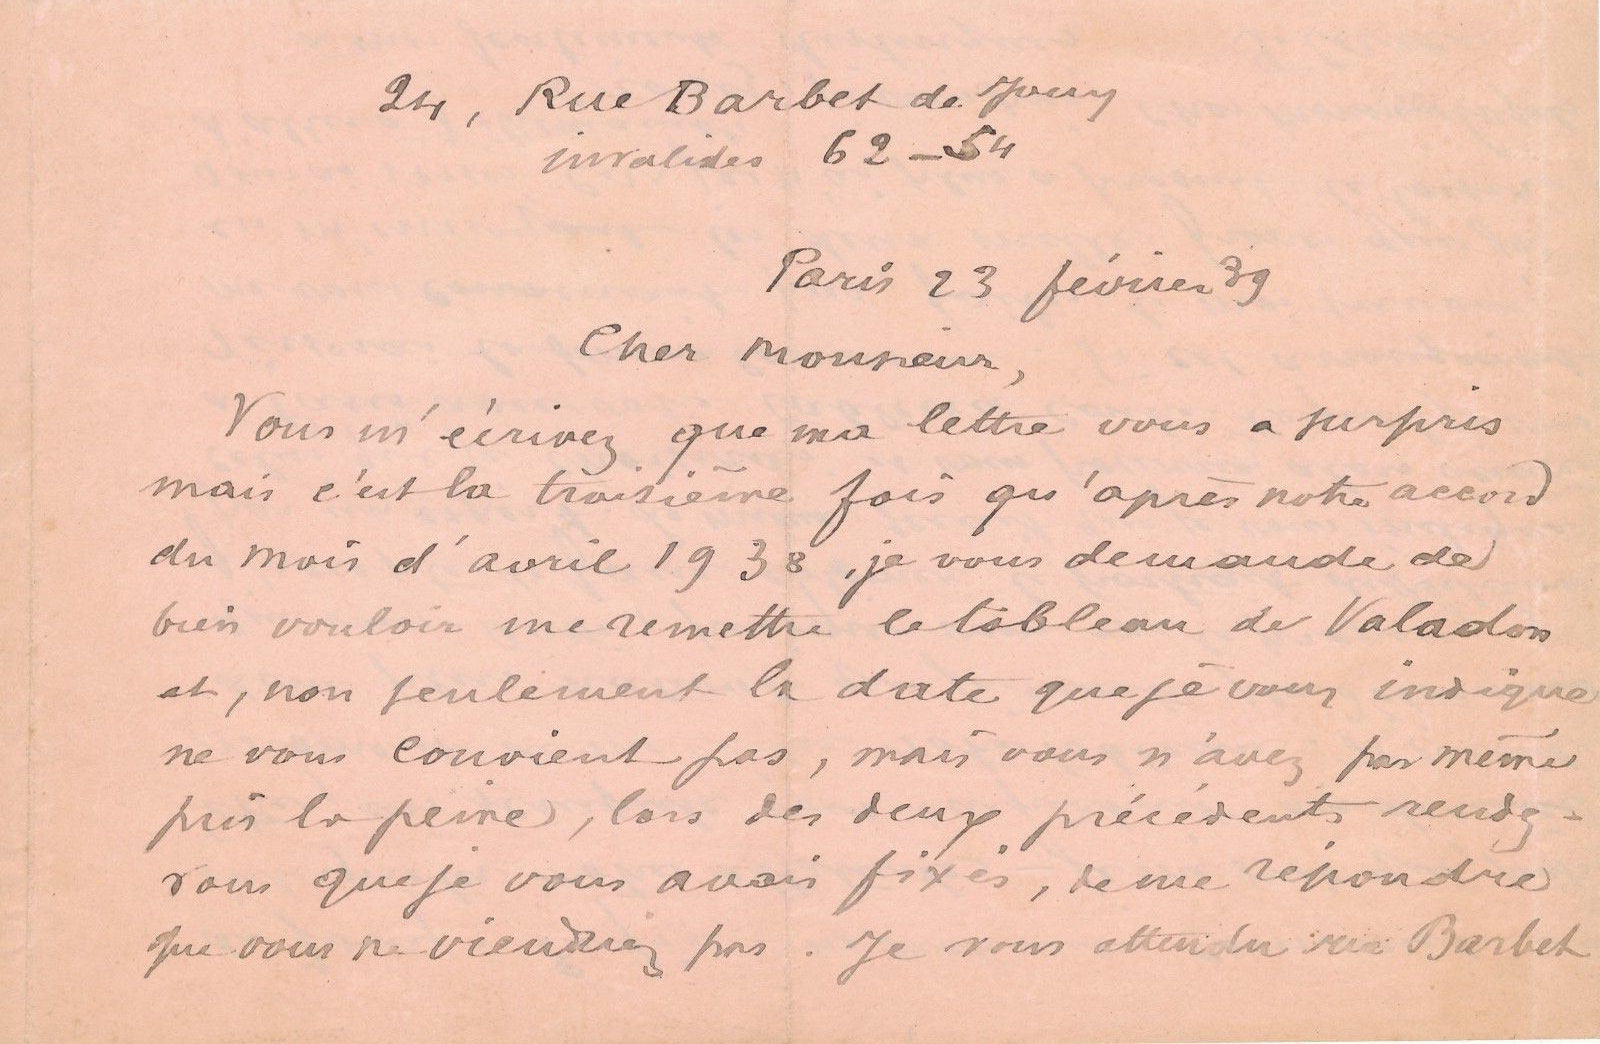 24, Rue Barbet de Jouy
invalides 62-54
Paris 23 février 39
Cher Monsieur,
Vous m'écrivez que ma lettre vous a surpris
mais c'est la troisième fois qu'après notre accord
du mois d'avril 1938, je vous demande de
bien vouloir me remettre le tableau de Valadon
et, non seulement la date que je vous indique
ne vous convient pas, mais vous n'avez pas même
pris la peine, lors des deux précédents rendez-
vous que je vous avais fixés, de me répondre
que vous ne viendriez pas. Je vous attendu rue Barbet